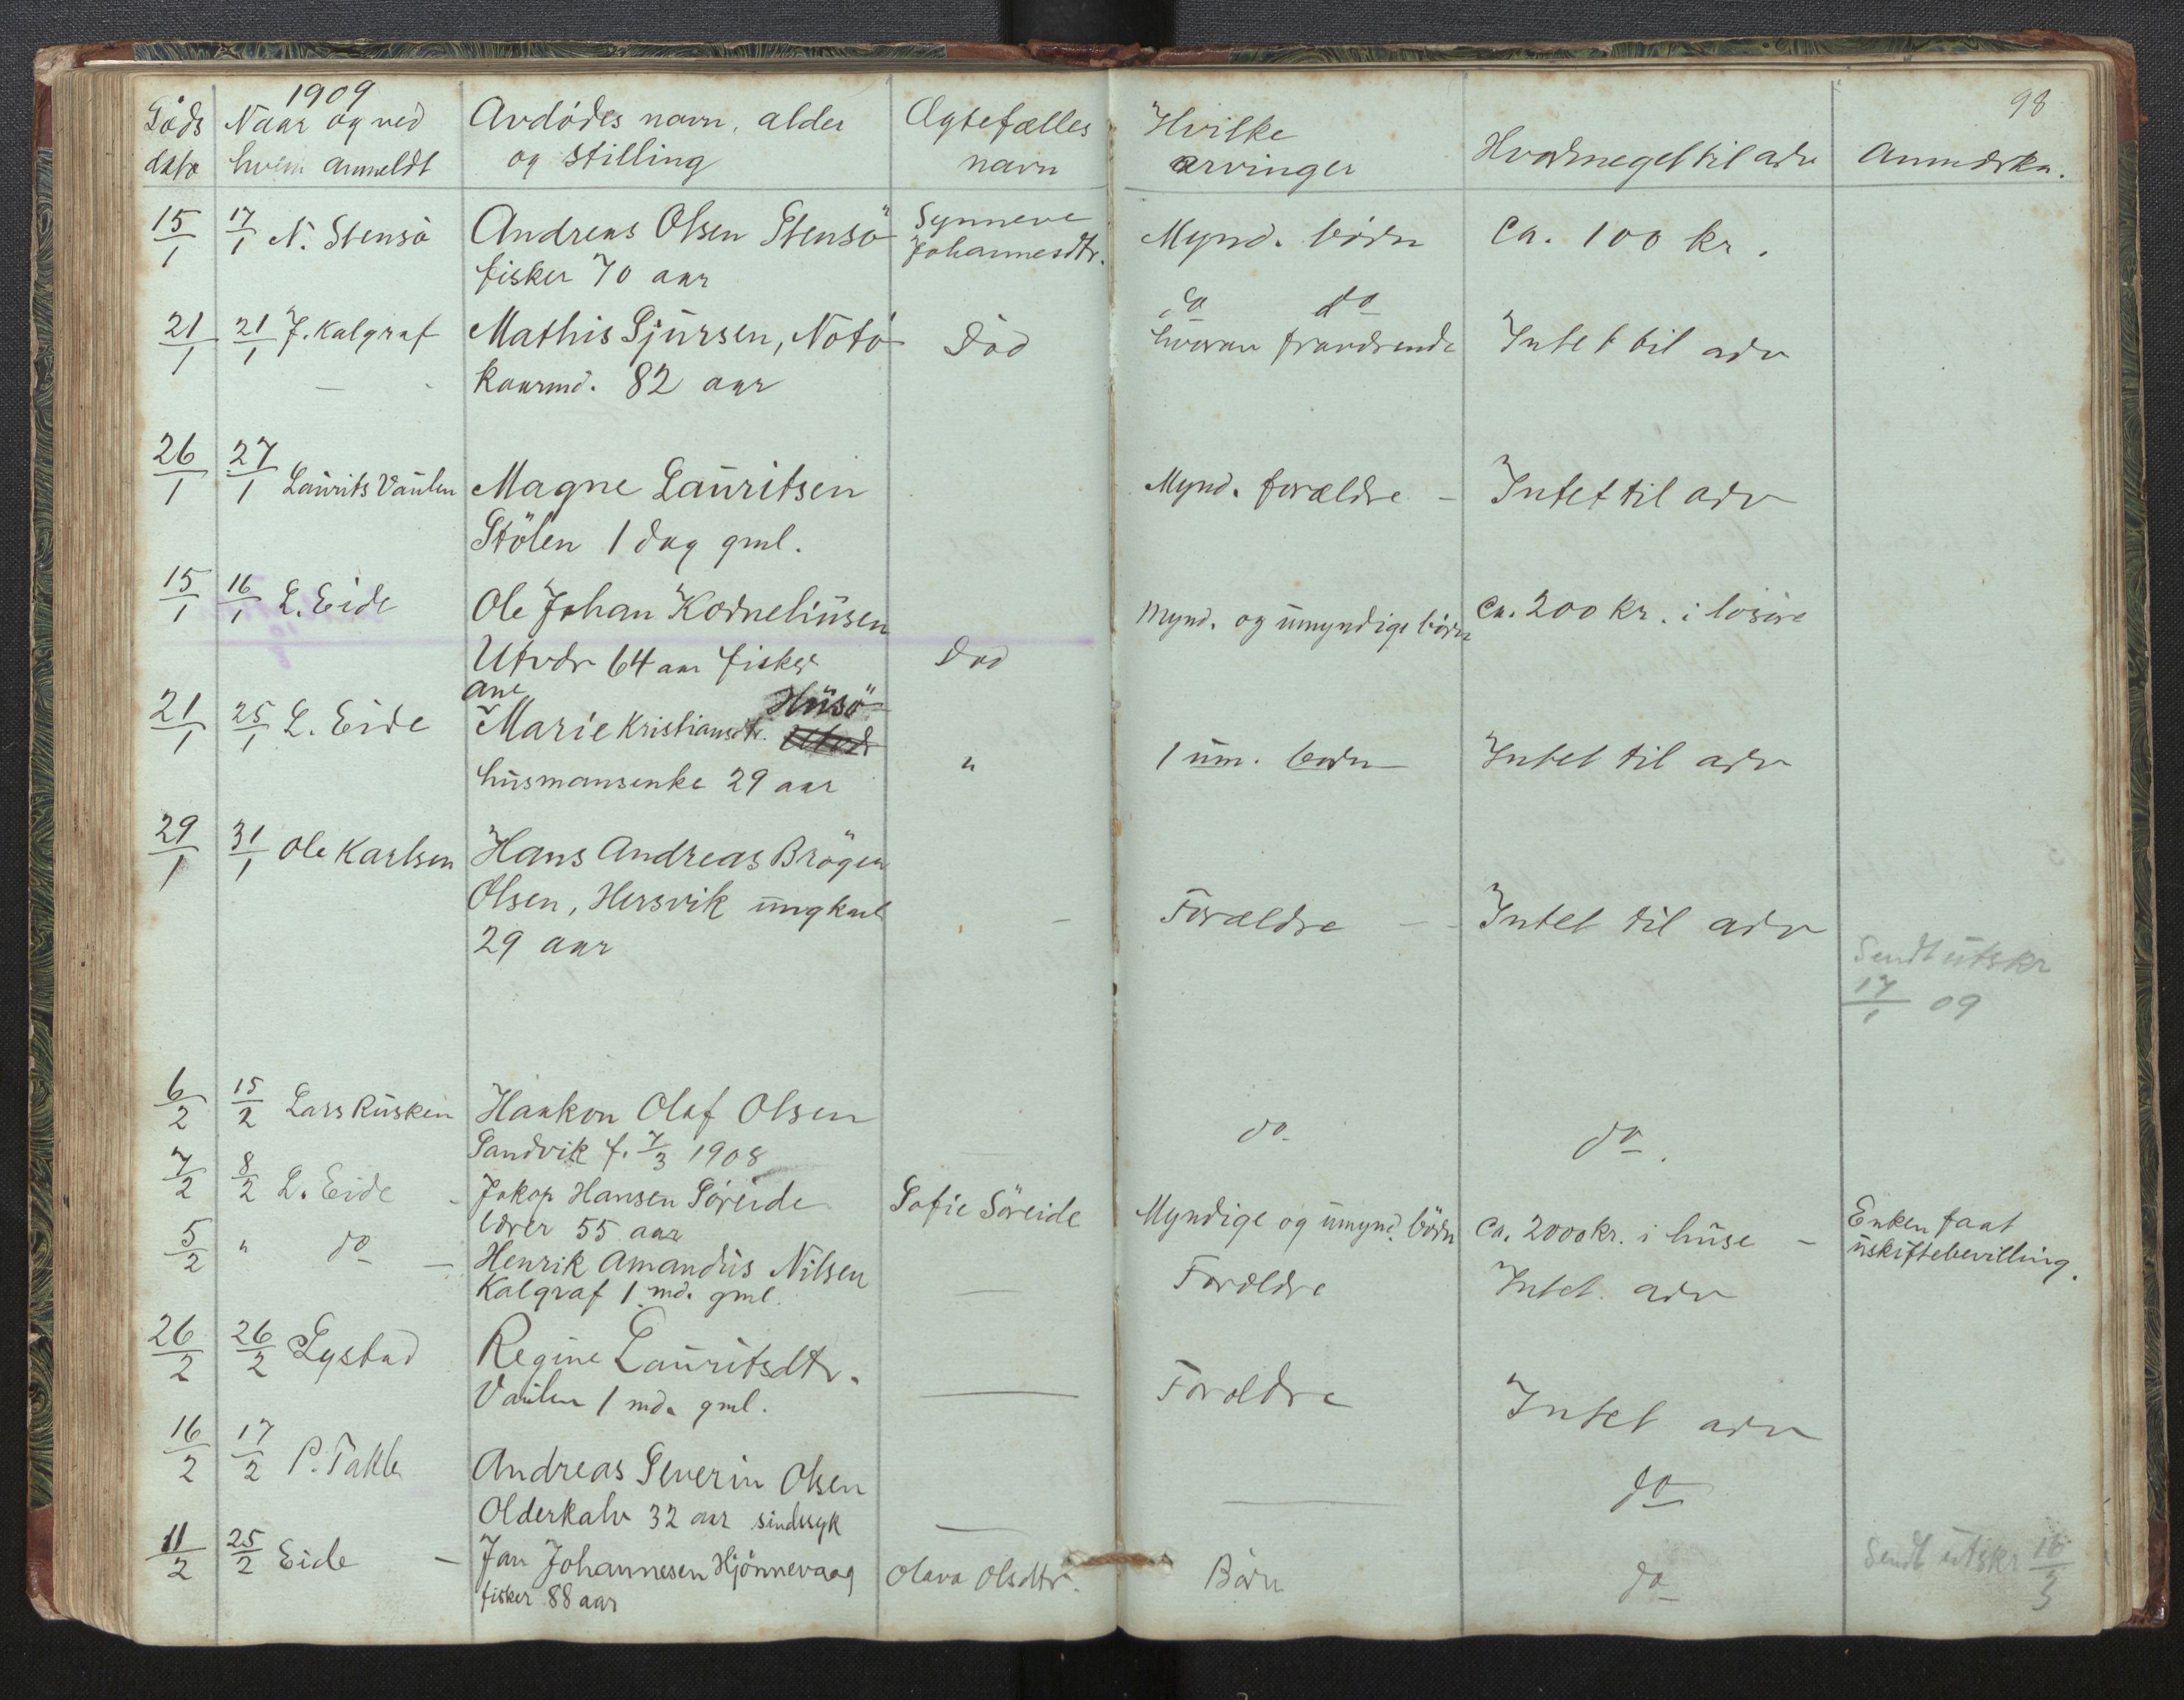 1909
98
Döds dato
Naar og ved hvem anmeldt
Avdödes navn, alder og stilling
Ægtefælles navn
Hvilke arvinger
Hvormeget til arv
Anmærkn.
15/1 17/1 N. Stensö Andreas Olsen Stensö Synneve Mynd. börn Ca. 100 kr.
fisker 70 aar Johannesdtr.
21/1 21/1 J. Kalgraf Mathis Sjursen, Notö Död do do Intet til arv
kaarmd. 82 aar hvorav fraværende
26/1 27/1 Laurits Vaulen Magne Lauritsen Mynd. forældre – Intet til arv
Stölen 1 dag gml.
15/1 16/1 L. Eide Ole Johan Korneliusen Mynd. og umyndige börn Ca. 200 kr. i lösöre
Utvær 64 aar fisker Död
21/1 25/1 L. Eide Ane Marie Kristiansdtr. Husö
husmansenke 29 aar " 1 um. barn Intet til arv
29/1 31/1 Ole Karlsen Hans Andreas Brögen
Olsen, Hersvik ungkarl – Forældre – Intet til arv
29 aar
Sendt utskr
17/1 09
6/2 15/2 Lars Rusken Haakon Olaf Olsen do do.
Sandvik f. 7/3 1908
7/2 8/2 L. Eide – Jakop Hansen Söreide Sofie Söreide Myndige og umynd. börn Ca. 2000 kr. i huse – Enken faat
lærer 55 aar uskiftebevilling.
5/2 " do – Henrik Amandus Nilsen — Forældre Intet arv
Kalgraf 1 md. gml.
26/2 26/2 Lystad Regine Lauritsdtr. — Forældre Intet arv
Vaulen 1 md. gml.
16/2 17/2 P. Takle Andreas Severin Olsen — do
Olderkalv 32 aar sindssyk —
11/2 25/2 Eide – Jan Johannesen Hjönnevaag Olava Olsdtr. Börn do Sendt utskr 16/3
fisker 88 aar